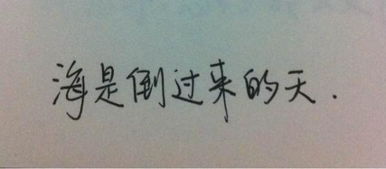 海是倒过来的天.